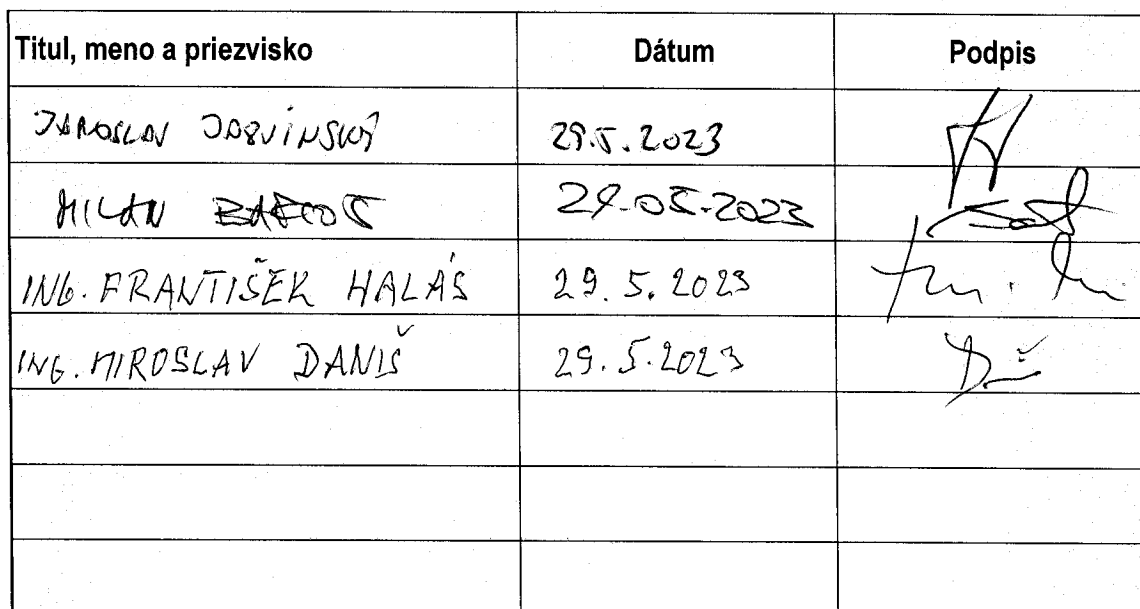 Titul, meno a priezvisko Dátum Podpis
JAROSLAV 29.5.2023
MILAN 29.05.2023
ING. FRANTIŠEK HALÁS 29.5.2023
ING. MIROSLAV DANIŠ 29.5.2023